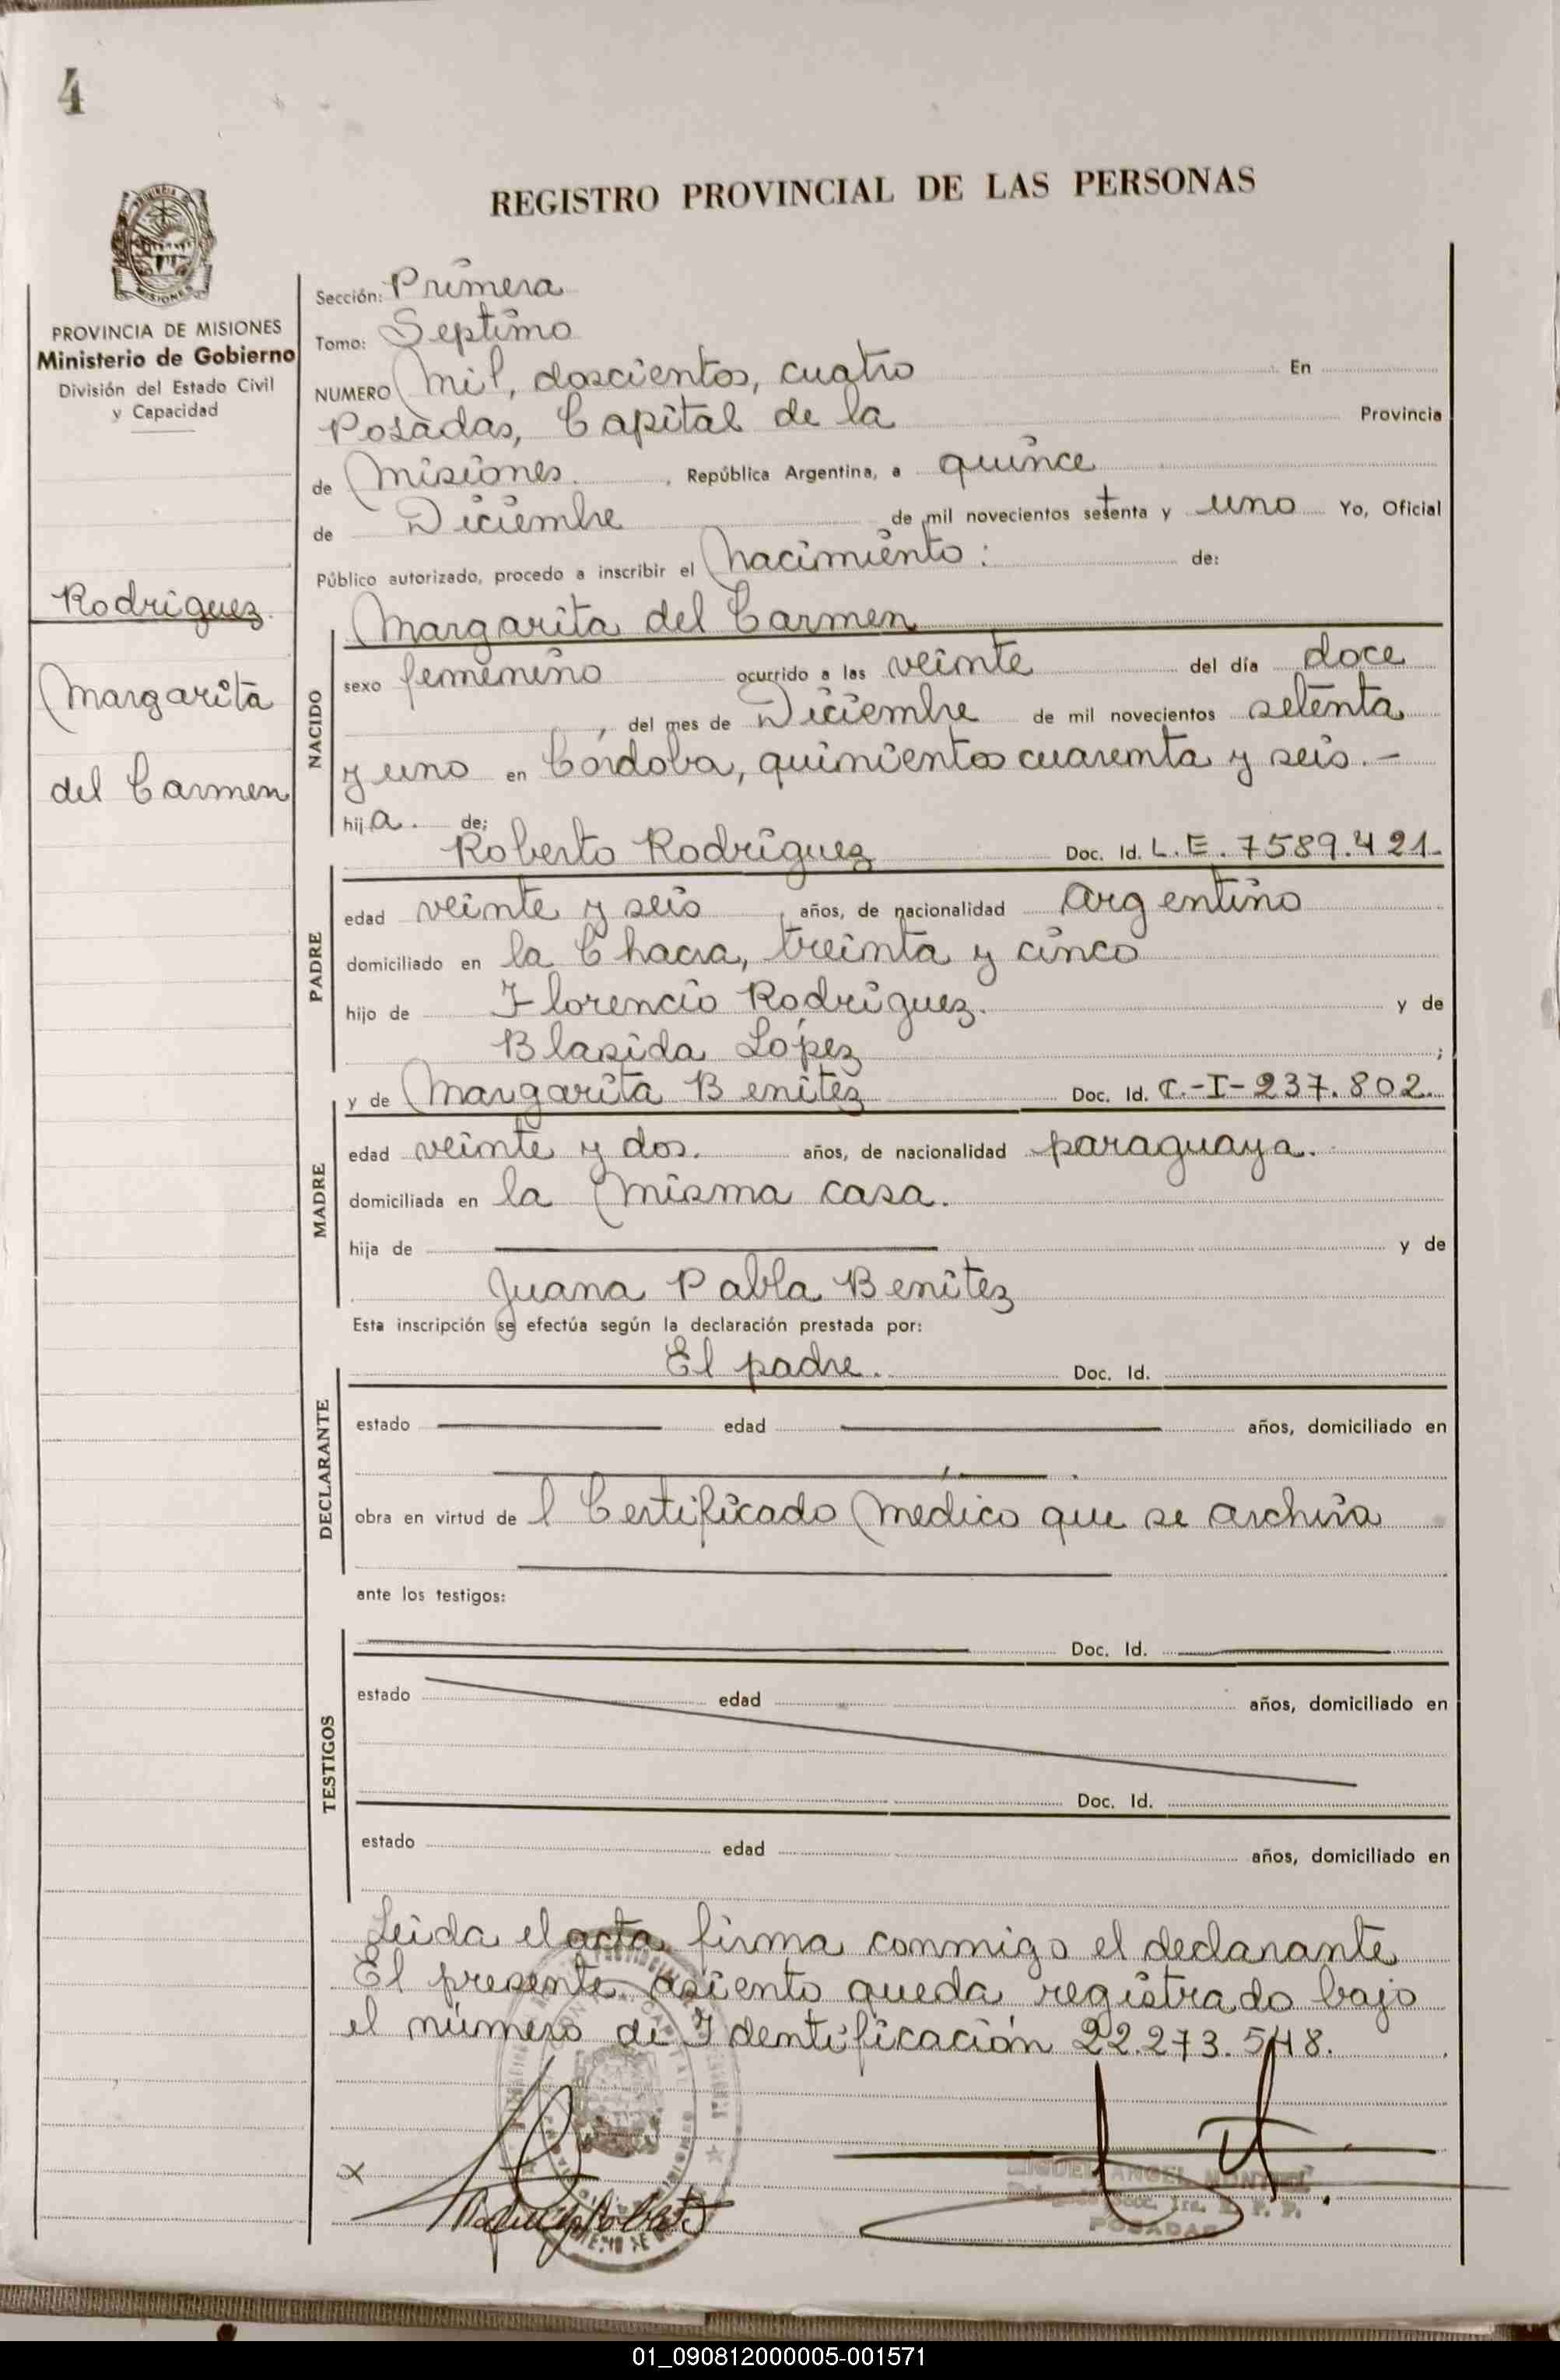 4
REGISTRO PROVINCIAL DE LAS PERSONAS
MISIONES
PROVINCIA DE MISIONES
Ministerio de Gobierno
División del Estado Civil
y Capacidad
Rodriguez.
Margarita
del Carmen
Sección: Primera
Tomo: Septimo
NUMERO Mil, doscientos, cuatro En
Posadas, Capital de la Provincia
de Misiones. , República Argentina, a quince
de Diciembre de mil novecientos setenta y uno Yo, Oficial
Público autorizado, procedo a inscribir el Nacimiento: de:
Margarita del Carmen
NACIDO
sexo femenino ocurrido a las veinte del día doce
, del mes de Diciembre de mil novecientos setenta
y uno en Córdoba, quinientos cuarenta y seis.-
hija. de;
Roberto Rodriguez Doc. Id. L.E. 7589.421.
PADRE
edad veinte y seis , años, de nacionalidad Argentino
domiciliado en la Chacra, treinta y cinco
hijo de Florencio Rodriguez. y de
Blasida López ;
y de Margarita Benitez Doc. Id. C.-I-237.802.
MADRE
edad veinte y dos. años, de nacionalidad paraguaya.
domiciliada en la misma casa.
hija de y de
Juana Pabla Benitez
Esta inscripción se efectúa según la declaración prestada por:
El padre. Doc. Id.
DECLARANTE
estado edad años, domiciliado en
obra en virtud de l Certificado Médico que se archiva
ante los testigos:
Doc. Id.
TESTIGOS
estado edad años, domiciliado en
Doc. Id.
estado edad años, domiciliado en
Leida el acta, firma conmigo el declarante
El presente asiento queda registrado bajo
el número de Identificación 22.273.548.
x
MIGUEL ANGEL
POSADAS
01_090812000005-001571